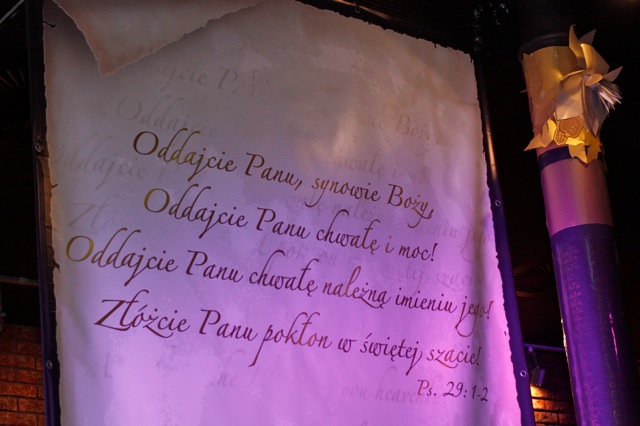 Oddajcie Panu, synowie Boży,
Oddajcie Panu chwałę i moc!
Oddajcie Panu chwałę należną imieniu jego!
Złóżcie Panu pokłon w świętej szacie!
Ps. 29:1-2